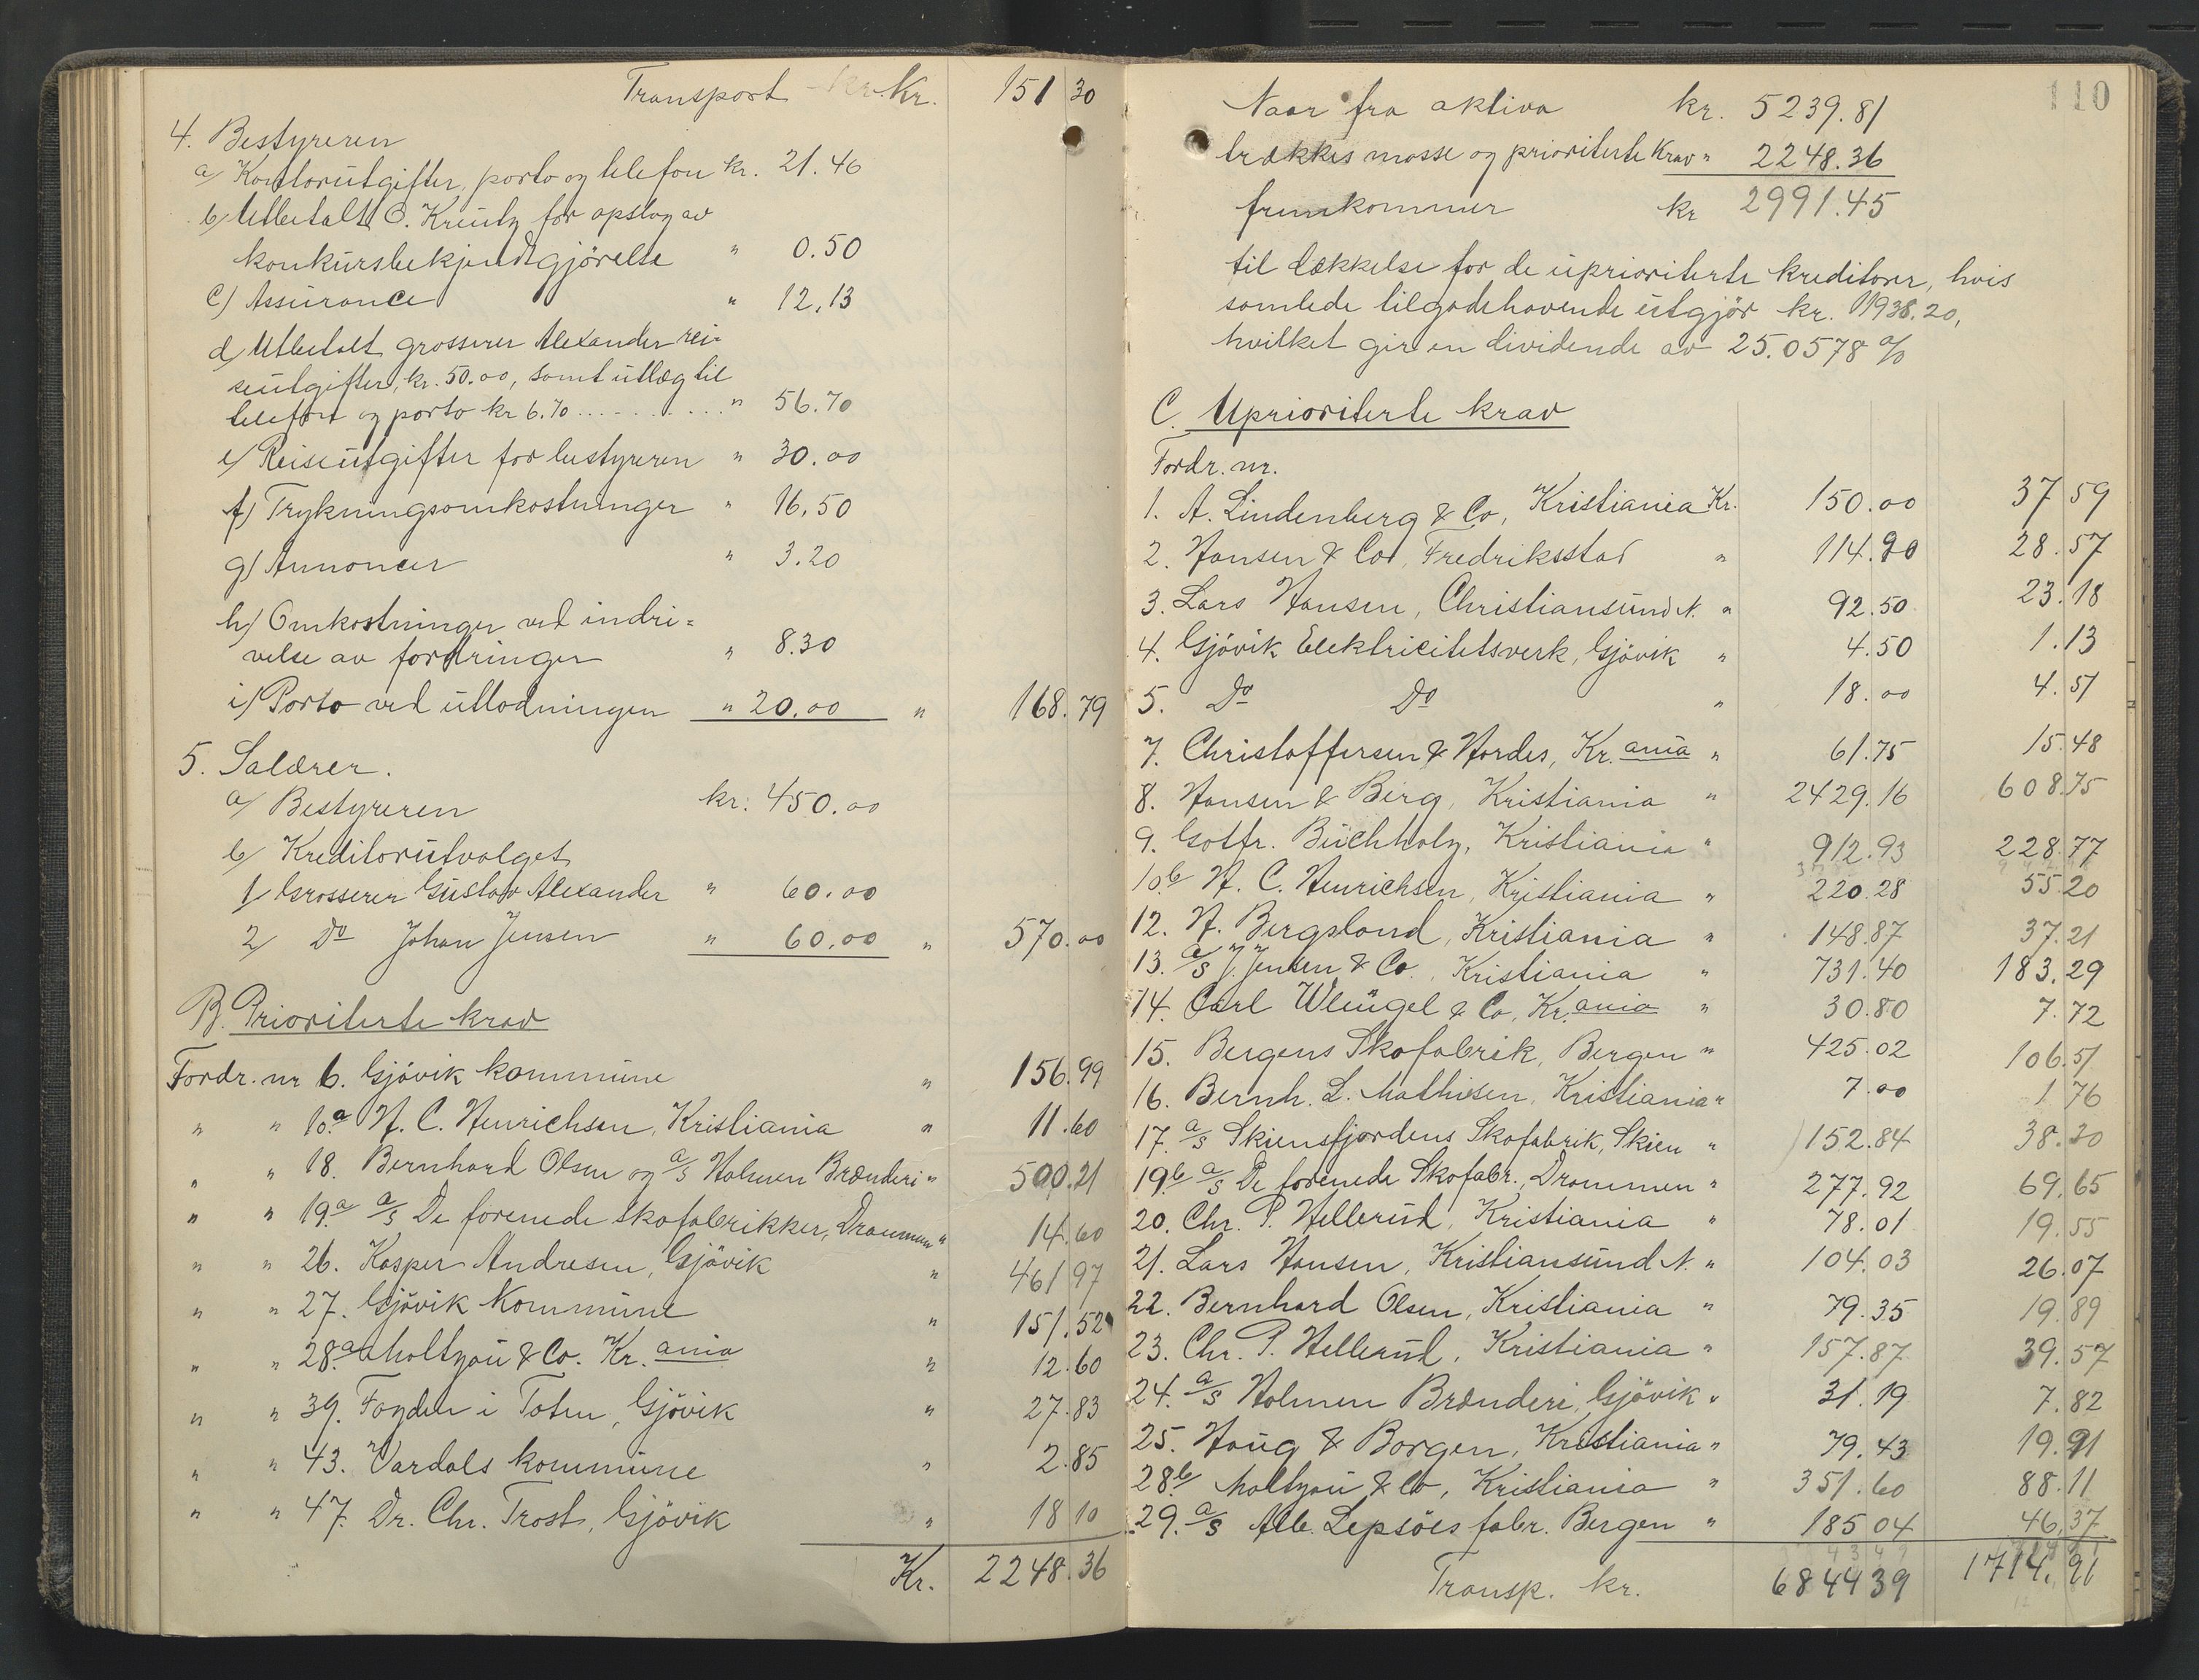 Transport Kr. 151 30
4. Bestyreren
a/ Kontorutgifter, porto og telefon kr. 21.46
b/ Utbetalt O. Kreutz for opslag av
konkursbekjendtgjörelse " 0.50
c/ Assurance " 12.13
d/ Utbetalt grosserer Alexander rei-
seutgifter, kr. 50.00, samt utlæg til
telefon og porto kr 6.70 .......... " 56.70
e/ Reiseutgifter for bestyreren " 30.00
f/ Trykningsomkostninger " 16.50
g/ Annoncer " 3.20
h/ Omkostninger ved indri=
velse av fordringer " 8.30
i/ Porto ved utlodningen " 20.00 " 168.79
5. Salærer.
a/ Bestyreren kr. 450.00
b/ Kreditorutvalget
1/ Grosserer Gustav Alexander " 60.00
2/ Do Johan Jensen " 60.00 " 570.00
B. Prioriterte krav
Fordr. nr 6. Gjövik kommune " 156.99
" " 10a H. C. Henrichsen, Kristiania " 11.60
" " 18. Bernhard Olsen og a/s Holmen Brænderi " 500.21
" " 19a a/s De forenede skofabrikker, Drammen " 14.60
" " 26. Kasper Andresen, Gjövik " 461 97
" " 27. Gjövik kommune " 151.52
" " 28a Moltzau & Co. Kr.ania " 12.60
" " 39. Fogden i Toten, Gjövik " 27.83
" " 43. Vardals kommune " 2.85
" " 47. Dr. Chr. Trost, Gjövik " 18 10
Kr. 2248.36
110
Naar fra aktiva kr. 5239.81
trækkes masse og prioriterte krav " 2248.36
fremkommer kr 2991.45
til dækkelse for de uprioriterte kreditorer, hvis
samlede tilgodehavende utgjör kr. 11938.20,
hvilket gir en dividende av 25.0578 %
C. Uprioriterte krav
Fordr. nr.
1. A. Lindenberg & Co, Kristiania Kr. 150.00 37 59
2. Hansen & Co, Fredriksstad " 114.90 28.57
3. Lars Hansen, Christiansund N. " 92.50 23.18
4. Gjövik Elektricitetsverk, Gjövik " 4.50 1.13
5. Do Do " 18.00 4.51
7. Christoffersen & Hordes, Kr.ania " 61.75 15.48
8. Hansen & Berg, Kristiania " 2429.16 608.75
9. Gotfr. Buchholz, Kristiania " 912.93 228.77
10b H. C. Henrichsen, Kristiania " 220.28 55.20
12. H. Bergsland, Kristiania " 148.87 37.21
13. a/s J. Jensen & Co., Kristiania " 731.40 183.29
14. Carl Wleügel & Co, Kr.ania " 30.80 7.72
15. Bergens Skofabrik, Bergen " 425.02 106.51
16. Bernh. L. Mathiesen, Kristiania " 7.00 1.76
17. a/s Skiensfjordens Skofabrik, Skien " 152.84 38.30
19b a/s De forenede Skofabr., Drammen " 277.92 69.65
20. Chr. P. Hellerud, Kristiania " 78.01 19.55
21. Lars Hansen, Kristiansund N. " 104.03 26.07
22. Bernhard Olsen, Kristiania " 79.35 19.89
23. Chr. P. Hellerud, Kristiania " 157.87 39.57
24. a/s Holmen Brænderi, Gjövik " 31.19 7.82
25. Haug & Borgen, Kristiania " 79.43 19.91
28b Moltzau & Co, Kristiania " 351.60 88.11
29. a/s Alb. Lepsöes fabr. Bergen " 185 04 46.37
Transp. kr. 6844 39 1714.91